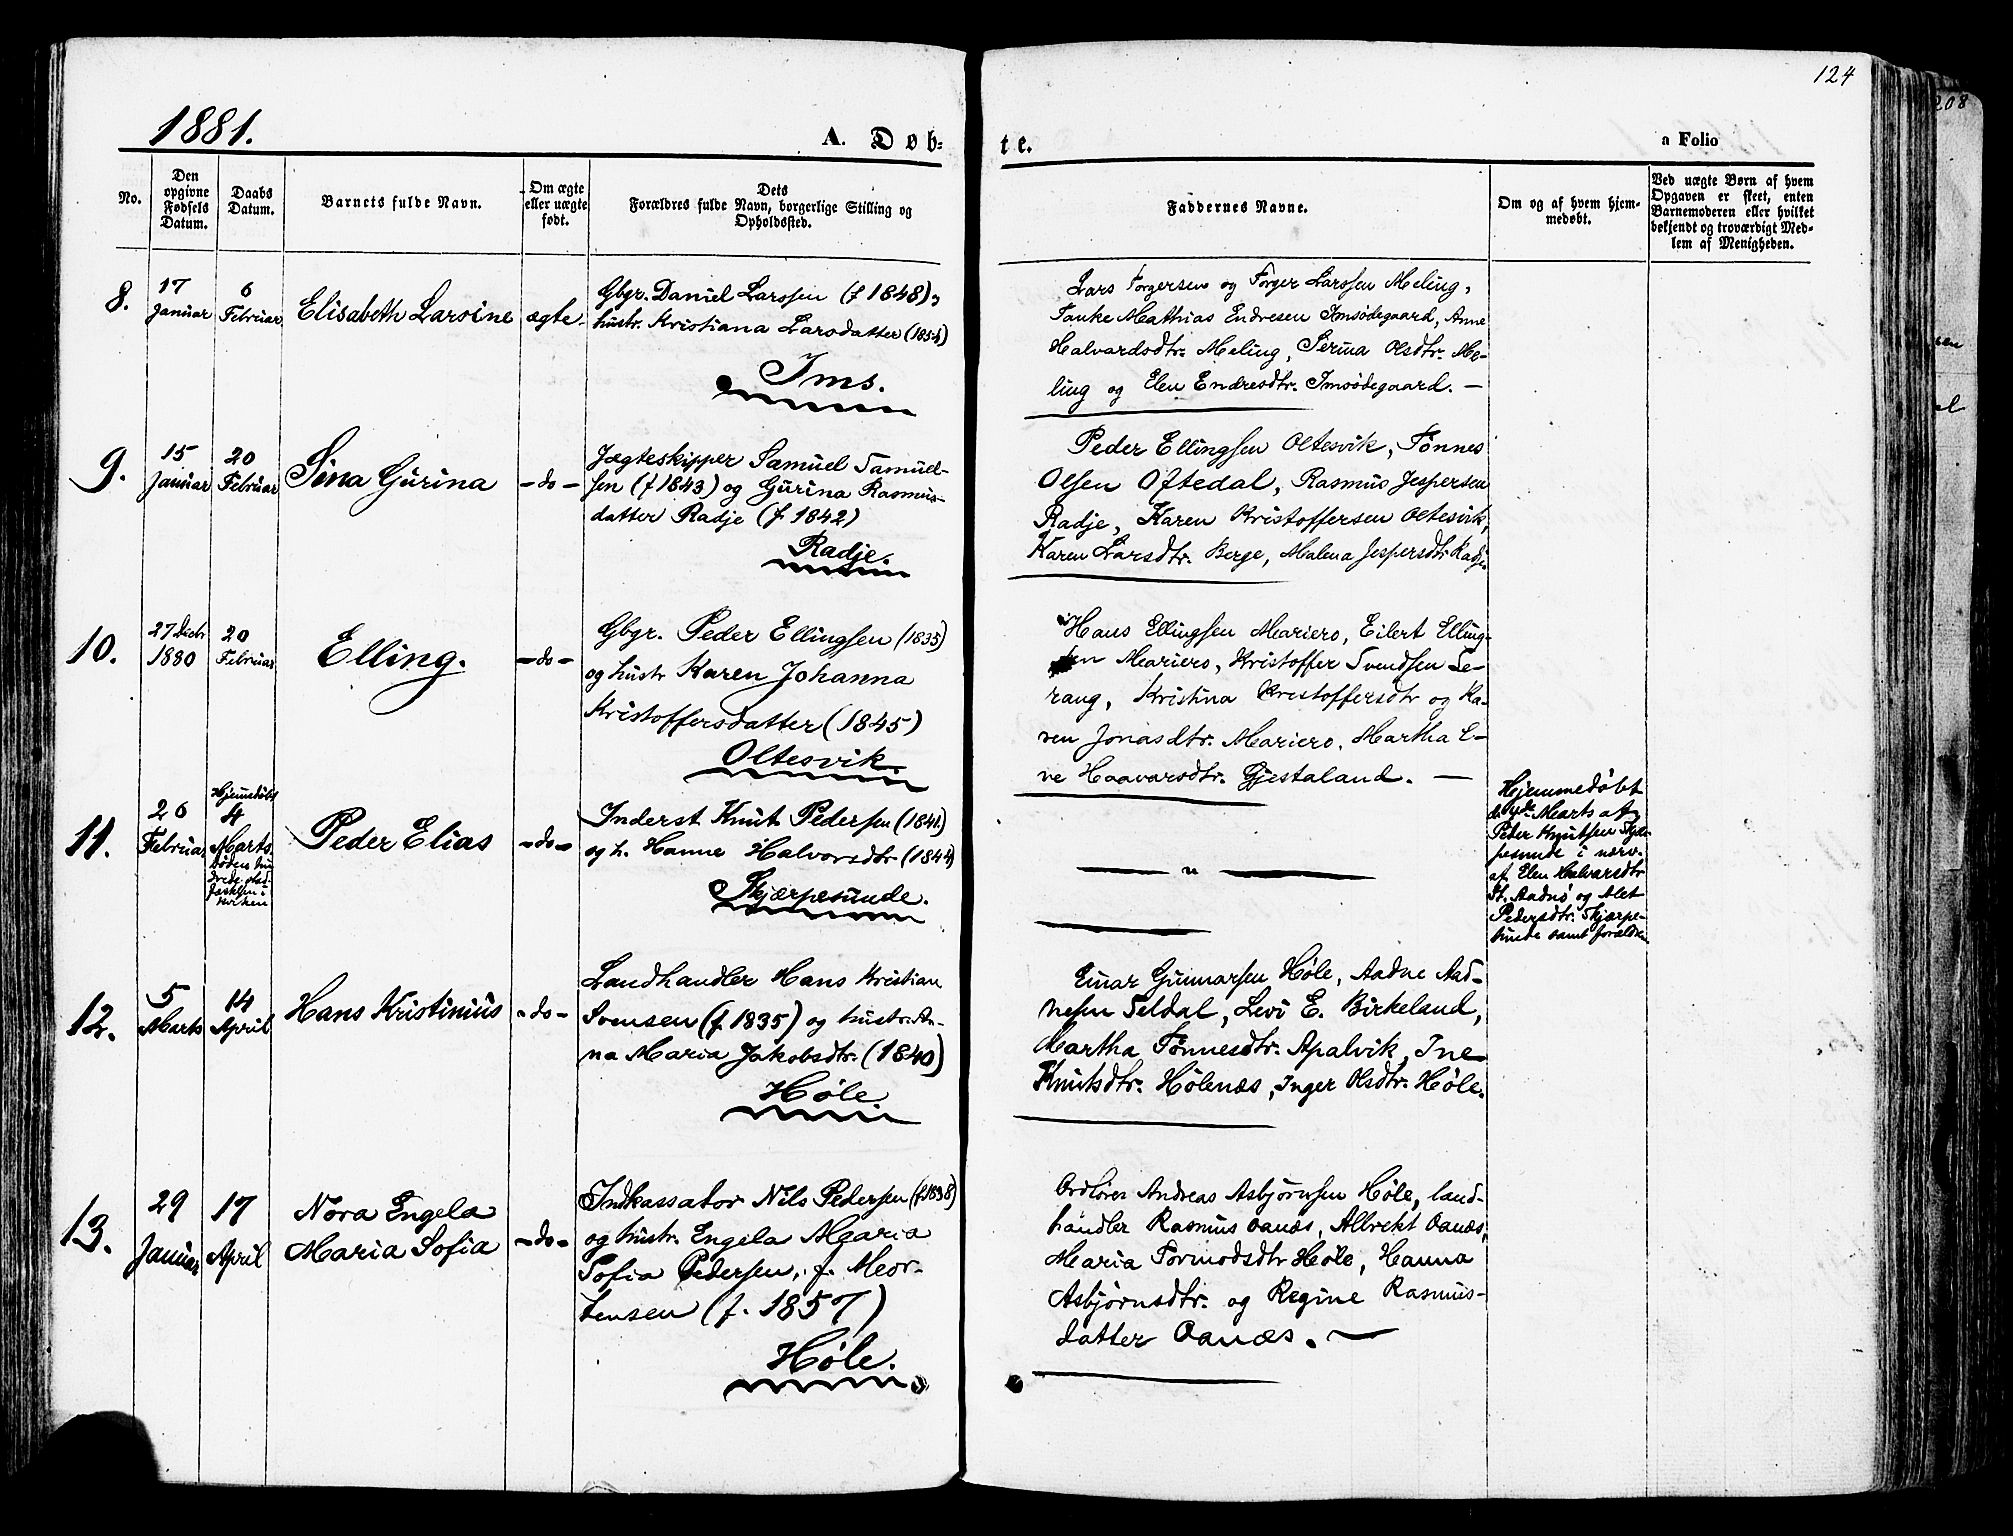 124
208
1881.
A. Døb-
te.
a Folio
No.
Den opgivne Fødsels Datum.
Daabs Datum.
Barnets fulde Navn.
Om ægte eller uægte født.
Dets Forældres fulde Navn, borgerlige Stilling og Opholdssted.
Faddernes Navne.
Om og af hvem hjem-
medøbt.
Ved uægte Børn af hvem
Opgaven er skeet, enten
Barnemoderen eller hvilket
bekjendt og troværdigt Med-
lem af Menigheden.
8.
17 Januar
6 Februar
Elisabeth Larsine
ægte
Gbgr. Daniel Larssen (f 1848),
hustr. Kristiana Larsdatter (1854)
Ims.
Lars Torgersen og Torger Larssen Meling,
Tanke Mathias Endresen Imsødegaard, Anne
Halvardsdtr. Meling, Serina Olsdtr. Me-
ling og Elen Endresdtr. Imsødegaard. —
9.
15 Januar
20 Februar
Sina Gurina
-do-
Jægteskipper Samuel Samuel-
sen (f 1843) og Gurina Rasmus-
datter Radje (f 1842)
Radje.
Peder Ellingsen Oltesvik, Tønnes
Olsen Oftedal, Rasmus Jespersen
Radje, Karen Kristoffersen Oltesvik,
Karen Larsdtr. Berge, Malena Jespersdtr Radje
10.
27 Decbr 1880
20 Februar
Elling.
-do-
Gbgr. Peder Ellingsen (1835)
og hustr Karen Johanna
Kristoffersdatter (1845)
Oltesvik.
Hans Ellingsen Mariero, Eilert Elling-
sen Mariero, Kristoffer Svendsen Se-
rang, Kristina Kristoffersdtr og Ka-
ren Jonasdtr. Mariero, Martha E-
ve Haavarsdtr. Gjestaland. —
11.
26 Februar
Hjemmedøbt
4
Marts.
Peder Elias
-do-
Inderst Knut Pedersen (1841)
og h. Hanne Halvorsdtr (1844)
Skjærpesunde.
— " —
Hjemmedøbt
d. 4de Marts af
Peder Knutsen Skjær-
pesunde i nærv.
af Elen Halvarsdtr
St. Aadnø og Alet
Pedersdtr. Skjærpe-
sunde samt forældre
12.
5 Marts
14 April
Hans Kristinius
-do-
Landhandler Hans Kristian
Svensen (f. 1835) og hustr. An-
na Maria Jakobsdtr. (1840)
Høle.
Einar Gunnarsen Høle, Aadne Aad-
nesen Seldal, Levi E. Birkeland,
Martha Tønnesdtr. Apalvik, Ine
Knutsdtr. Hølenæs, Inger Olsdtr. Høle.
13.
29 Januar
17 April
Nora Engela
Maria Sofia
-do-
Indkassator Nils Pedersen (f. 1838)
og hustr. Engela Maria
Sofia Pedersen, f. Mor-
tensen (f. 1857)
Høle.
Ordfører Andreas Asbjørnsen Høle, land-
handler Rasmus Oanæs, Albrekt Oanæs,
Maria Tormodsdtr Høle, Hanna
Asbjørnsdtr. og Regine Rasmus-
datter Oanæs. —